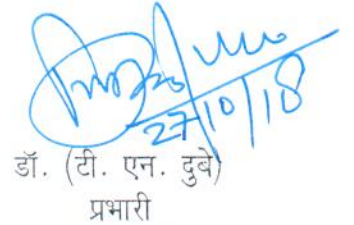 27/10/18
डॉ. (टी. एन. दुबे)
प्रभारी